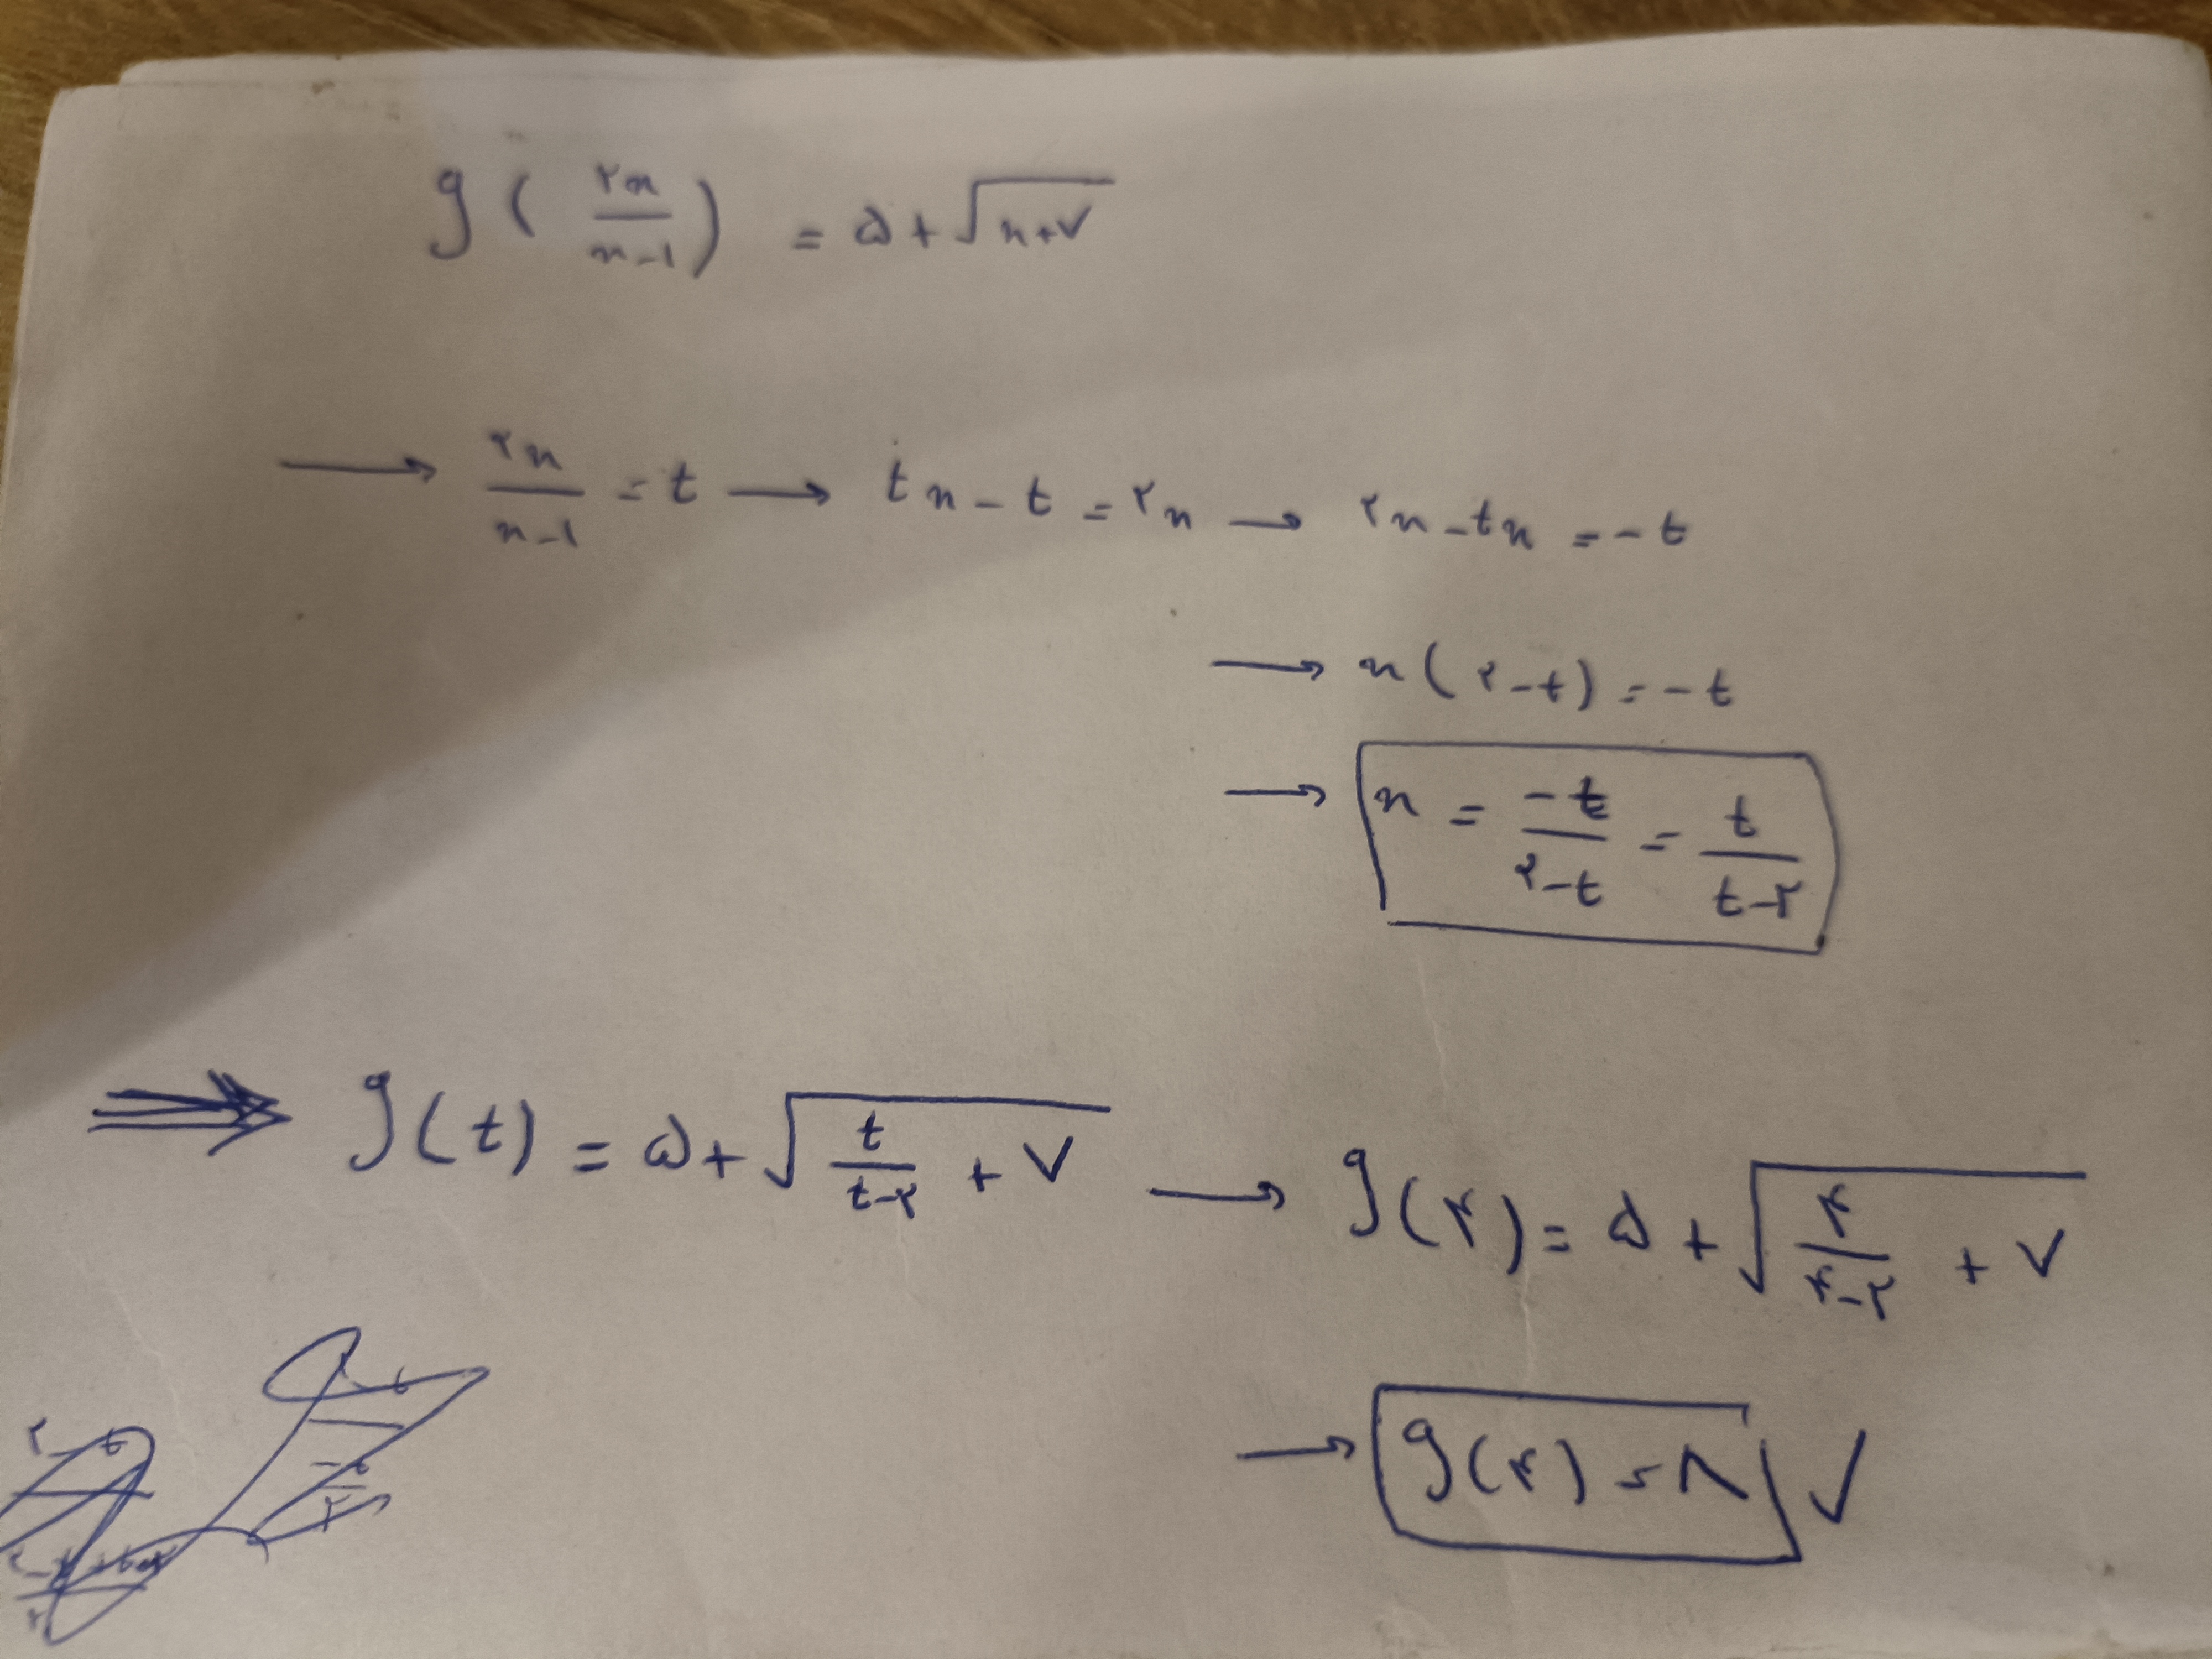 g(۲x/x-۱) = ۵ + √x+۷
→ ۲x/x-۱ = t → tx - t = ۲x → ۲x - tx = -t
→ x(۲-t) = -t
→ x = -t/۲-t = t/t-۲
⇒ g(t) = ۵ + √t/t-۲ + ۷ → g(۴) = ۵ + √۴/۴-۲ + ۷
→ g(۴) = ۸ ✓